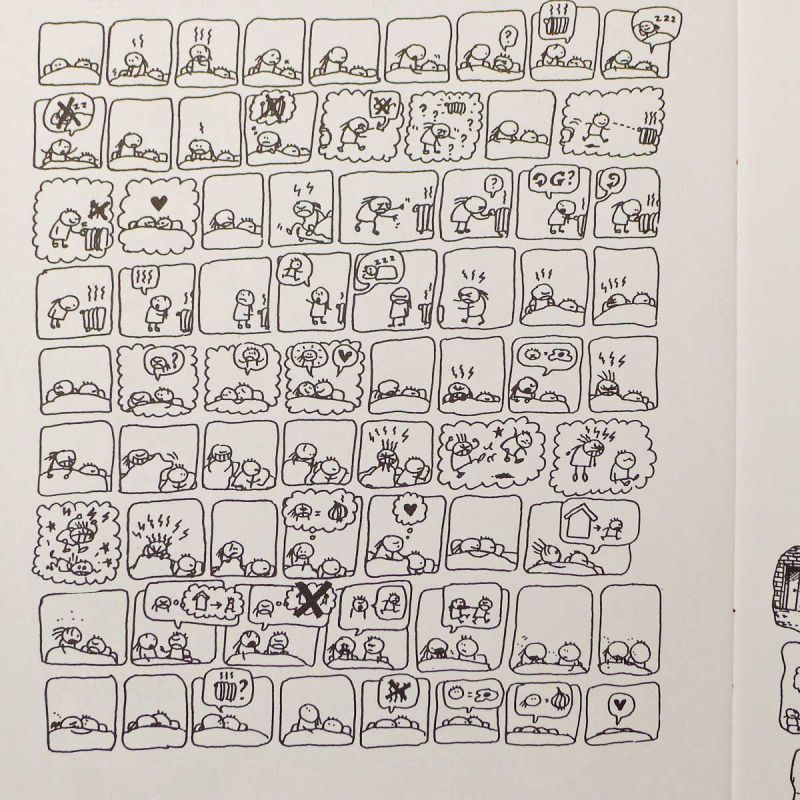 ?
zzz
zz
? ? ?
?
?
zzz
?
=
=
?
=
=